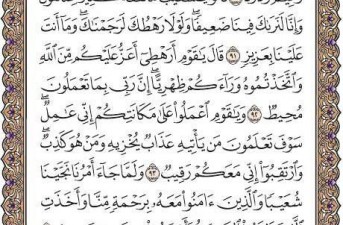 وَإِنَّا لَنَرَىٰكَ فِينَا ضَعِيفًا ۖ وَلَوْلَا رَهْطُكَ لَرَجَمْنَٰكَ ۖ وَمَآ أَنتَ
عَلَيْنَا بِعَزِيزٍ ٩١ قَالَ يَٰقَوْمِ أَرَهْطِىٓ أَعَزُّ عَلَيْكُم مِّنَ ٱللَّهِ
وَٱتَّخَذْتُمُوهُ وَرَآءَكُمْ ظِهْرِيًّا ۖ إِنَّ رَبِّى بِمَا تَعْمَلُونَ
مُحِيطٌ ٩٢ وَيَٰقَوْمِ ٱعْمَلُوا۟ عَلَىٰ مَكَانَتِكُمْ إِنِّى عَٰمِلٌ ۖ
سَوْفَ تَعْلَمُونَ مَن يَأْتِيهِ عَذَابٌ يُخْزِيهِ وَمَنْ هُوَ كَٰذِبٌ ۖ
وَٱرْتَقِبُوٓا۟ إِنِّى مَعَكُمْ رَقِيبٌ ٩٣ وَلَمَّا جَآءَ أَمْرُنَا نَجَّيْنَا
شُعَيْبًا وَٱلَّذِينَ ءَامَنُوا۟ مَعَهُۥ بِرَحْمَةٍ مِّنَّا وَأَخَذَتِ